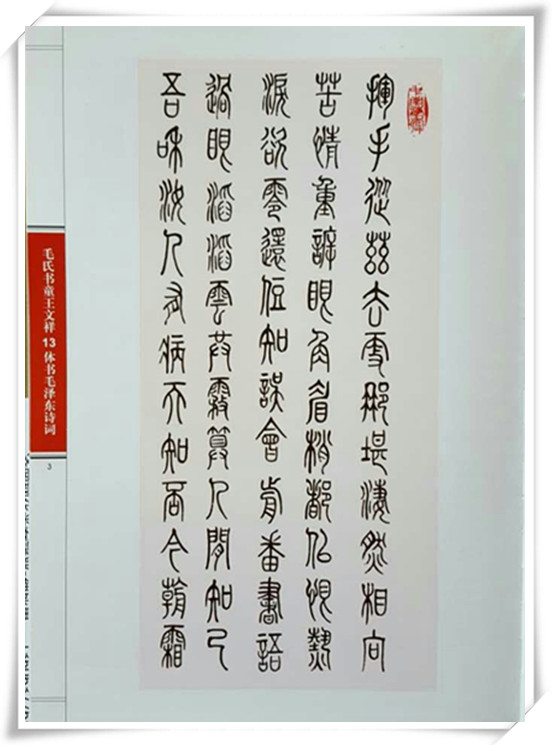 揮手從茲去更那堪淒然相向
苦情重訴眼角眉梢都佀恨熱
淚欲零還住知誤會前番書語
過眼滔滔雲共霧算人間知己
吾和汝人有病天知否今朝霜
毛氏书童王文祥 13 体书毛泽东诗词
3